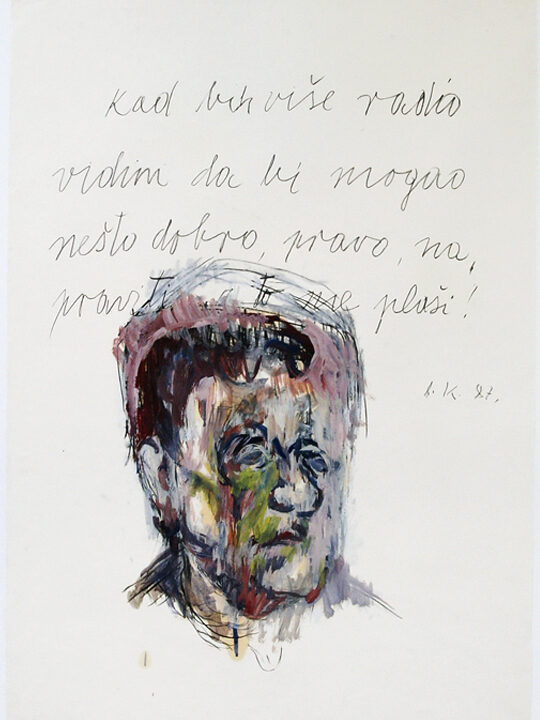 Kad bih više radio
vidim da bi mogao
nešto dobro, pravo, na,
praviti, a to me plaši!
b. K. 87.